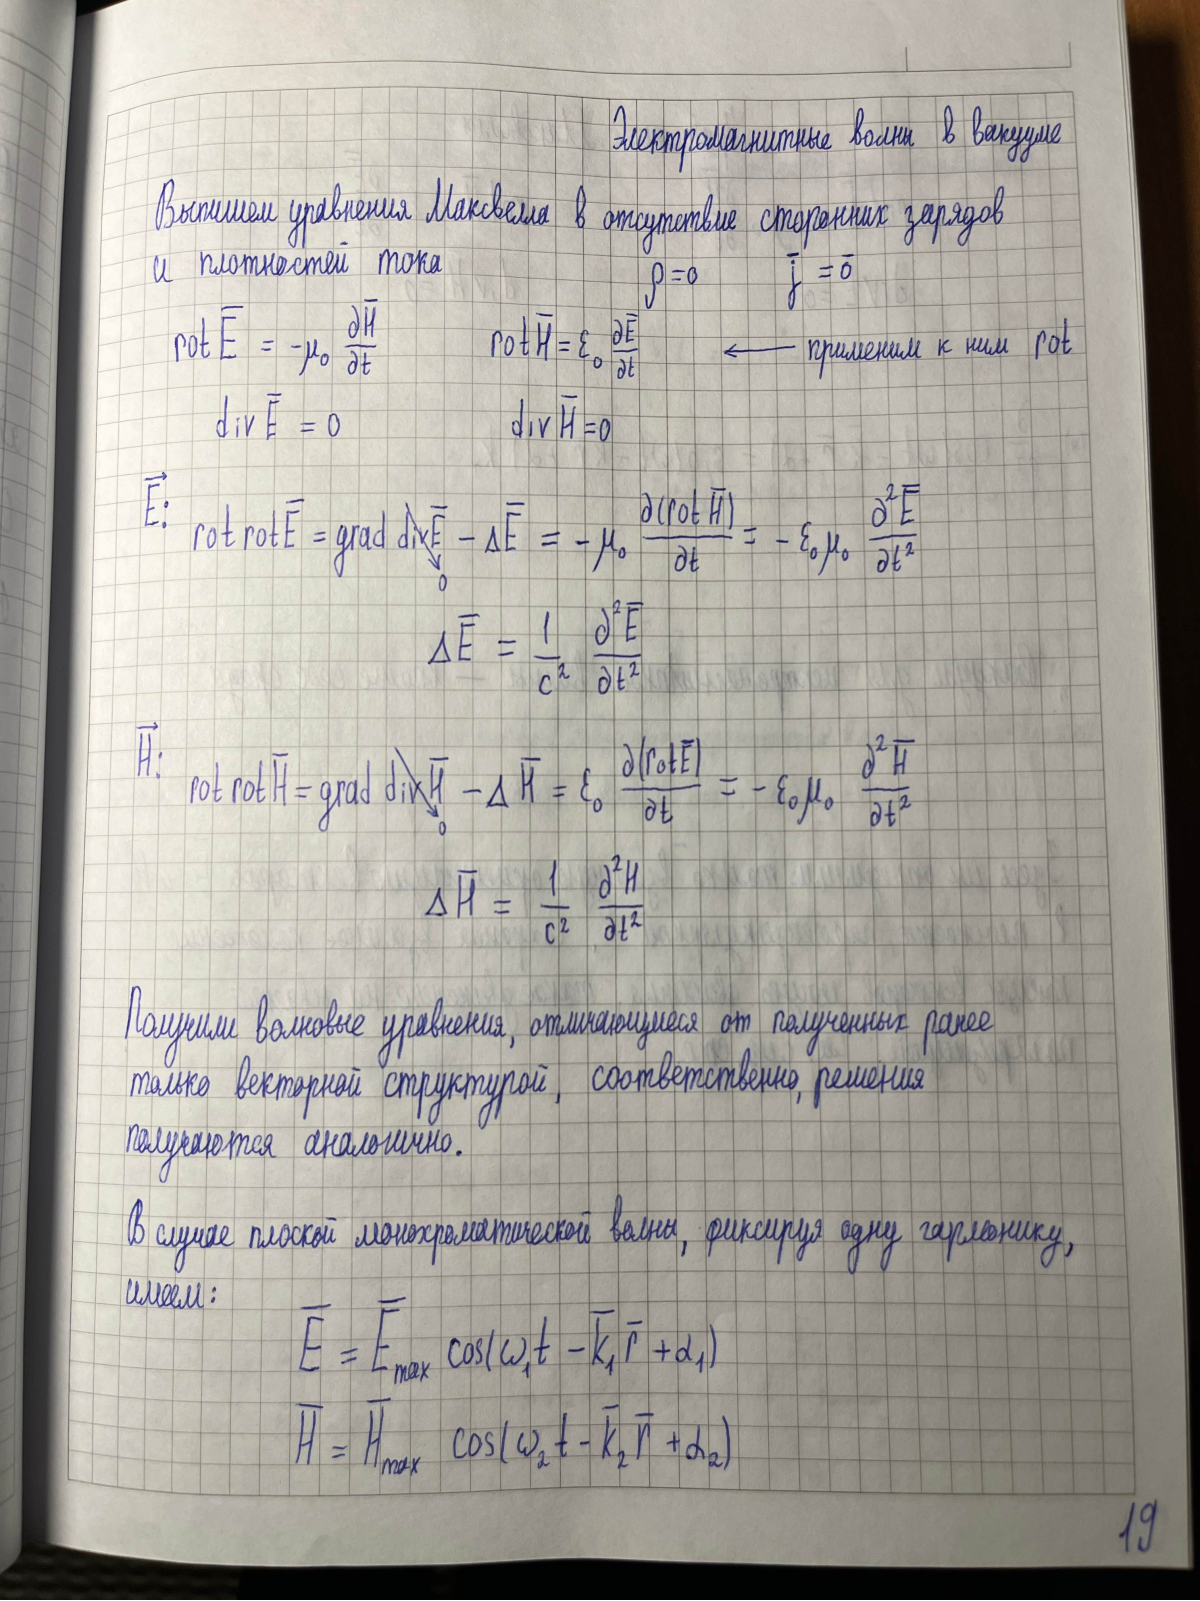 Электромагнитные волны в вакууме
Выпишем уравнения Максвелла в отсутствие сторонних зарядов
и плотностей тока ρ=0 j̄ = ō
rot Ē = -μ₀ ∂H̄/∂t rot H̄ = ε₀ ∂Ē/∂t ← применим к ним rot
div Ē = 0 div H̄ = 0
E⃗:
rot rot Ē = grad div Ē → 0 - ΔĒ = -μ₀ ∂(rot H̄)/∂t = -ε₀μ₀ ∂²Ē/∂t²
ΔĒ = 1/c² ∂²Ē/∂t²
H⃗:
rot rot H̄ = grad div H̄ → 0 - ΔH̄ = ε₀ ∂(rot Ē)/∂t = -ε₀μ₀ ∂²H̄/∂t²
ΔH̄ = 1/c² ∂²H/∂t²
Получили волновые уравнения, отличающиеся от полученных ранее
только векторной структурой, соответственно, решения
получаются аналогично.
В случае плоской монохроматической волны, фиксируя одну гармонику,
имеем:
Ē = Ē_max cos(ω₁t - k̄₁r̄ + α₁)
H̄ = H̄_max cos(ω₂t - k̄₂r̄ + α₂)
19